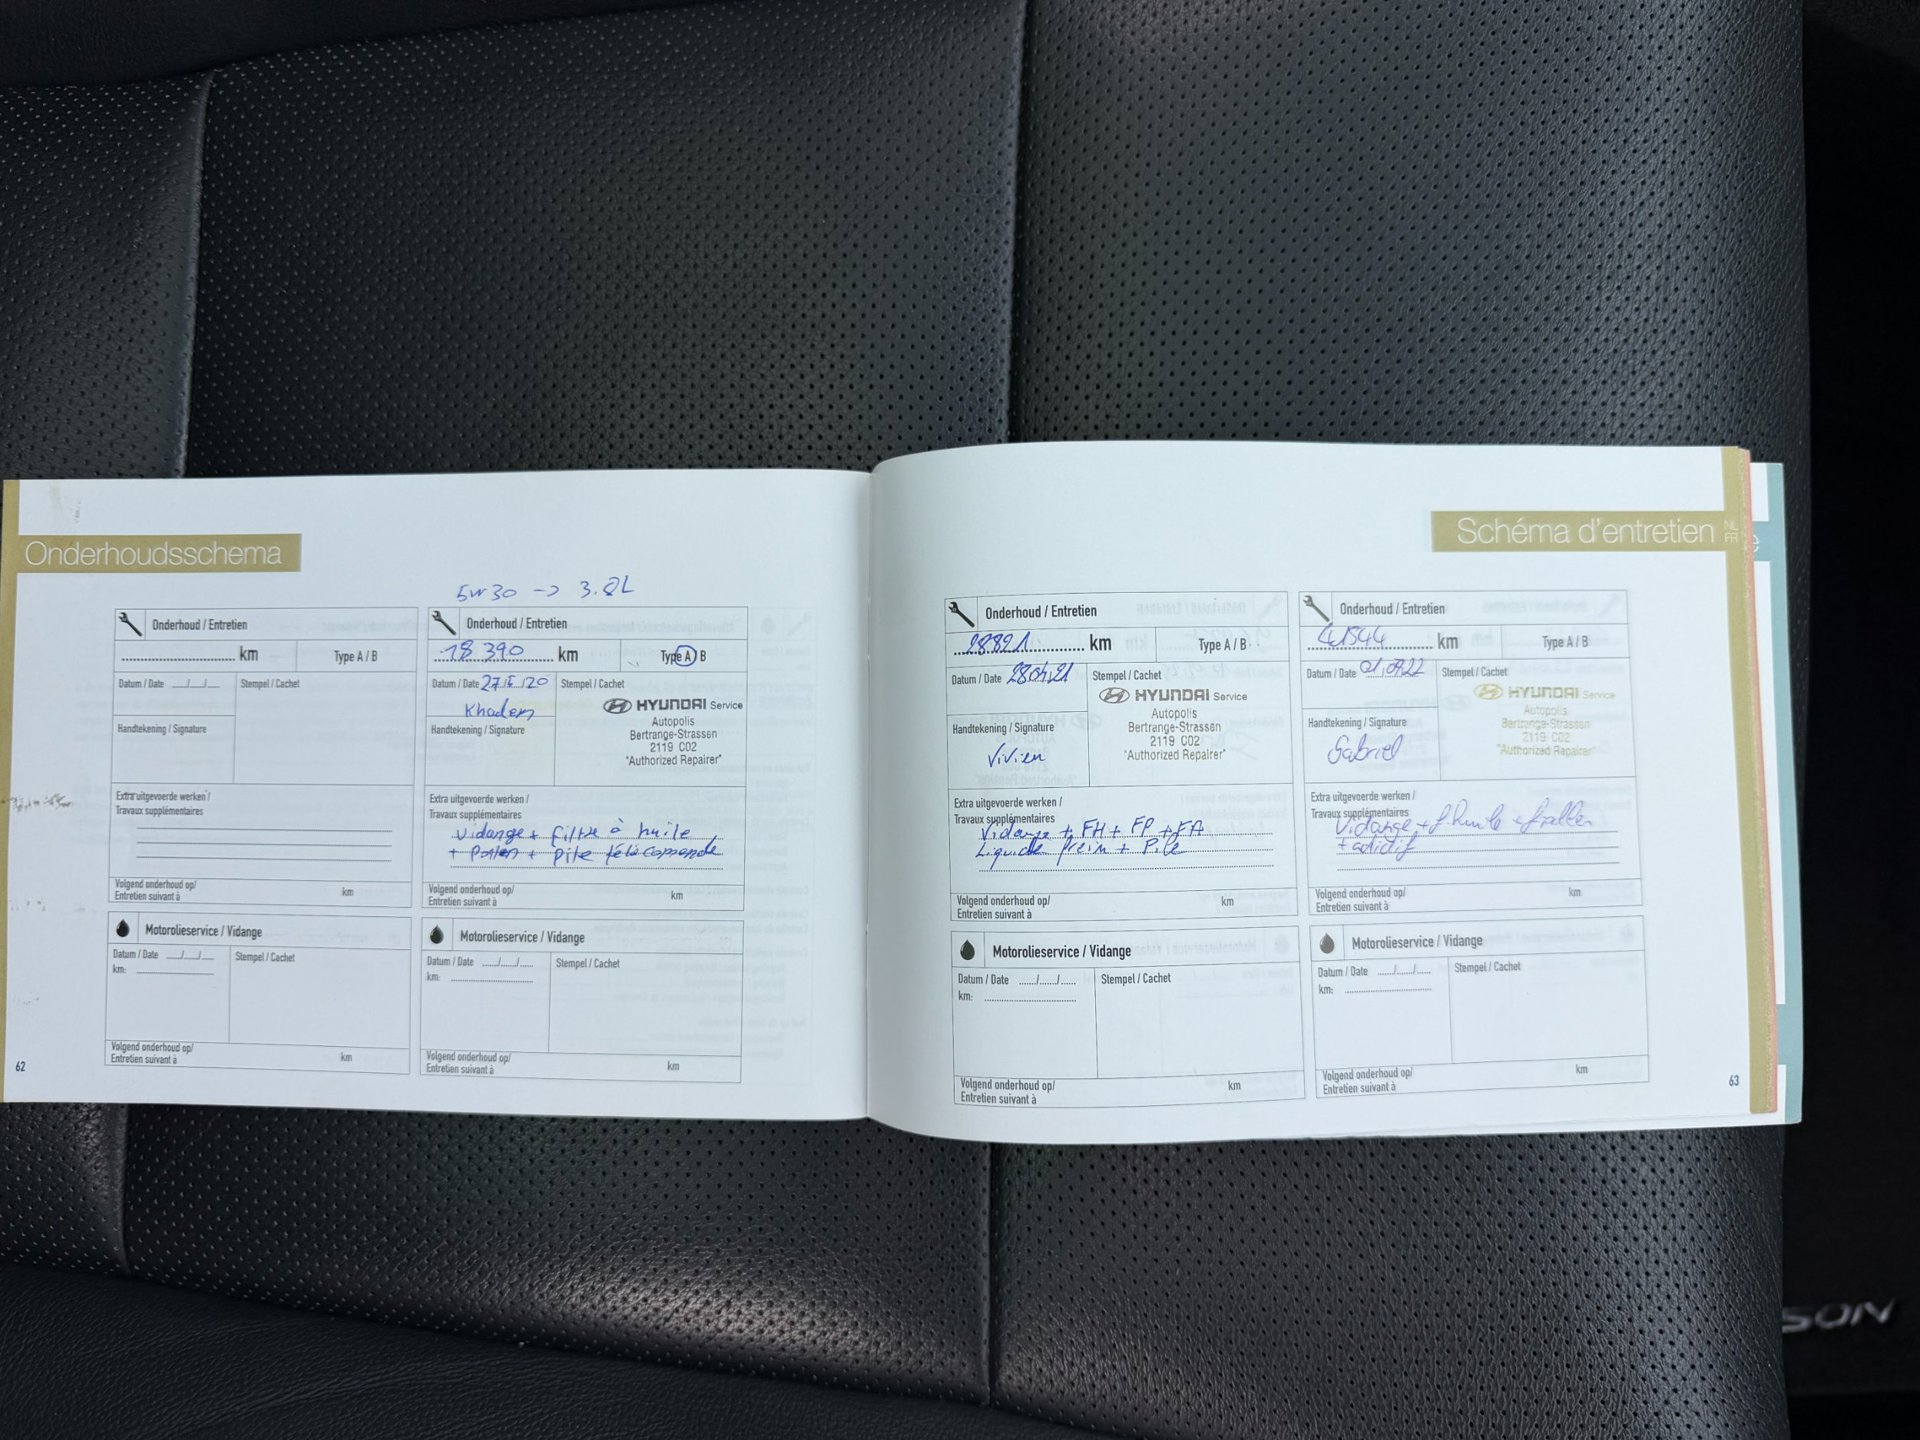 Onderhoudsschema
5W30 -> 3.8L
Onderhoud / Entretien
km
Type A / B
Datum / Date
Stempel / Cachet
Handtekening / Signature
Extra uitgevoerde werken /
Travaux supplémentaires
Volgend onderhoud op/
Entretien suivant à
km
Motorolieservice / Vidange
Datum / Date
Stempel / Cachet
km:
Volgend onderhoud op/
Entretien suivant à
km
62
Onderhoud / Entretien
18 390 km
Type A / B
Datum / Date
Stempel / Cachet
Khadem
HYUNDAI Service
Autopolis
Bertrange-Strassen
2119 C02
"Authorized Repairer"
Handtekening / Signature
Extra uitgevoerde werken /
Travaux supplémentaires
Vidange + filtre à huile
+ Pollen + pile télécommande
Volgend onderhoud op/
Entretien suivant à
km
Motorolieservice / Vidange
Datum / Date
Stempel / Cachet
km:
Volgend onderhoud op/
Entretien suivant à
km
Schéma d'entretien
NL
FR
Onderhoud / Entretien
28821 km
Type A / B
Datum / Date 280421
Stempel / Cachet
HYUNDAI Service
Autopolis
Bertrange-Strassen
2119 C02
"Authorized Repairer"
Handtekening / Signature
Vivien
Extra uitgevoerde werken /
Travaux supplémentaires
Vidange + FH + FP + FA
Liquide frein + Pile
Volgend onderhoud op/
Entretien suivant à
km
Motorolieservice / Vidange
Datum / Date
Stempel / Cachet
km:
Volgend onderhoud op/
Entretien suivant à
km
Onderhoud / Entretien
41544 km
Type A / B
Datum / Date
Stempel / Cachet
HYUNDAI Service
Autopolis
Bertrange-Strassen
2119 C02
"Authorized Repairer"
Handtekening / Signature
Gabriel
Extra uitgevoerde werken /
Travaux supplémentaires
Vidange + f. huile + f. pollen
+ adictif
Volgend onderhoud op/
Entretien suivant à
km
Motorolieservice / Vidange
Datum / Date
Stempel / Cachet
km:
Volgend onderhoud op/
Entretien suivant à
km
63
SON